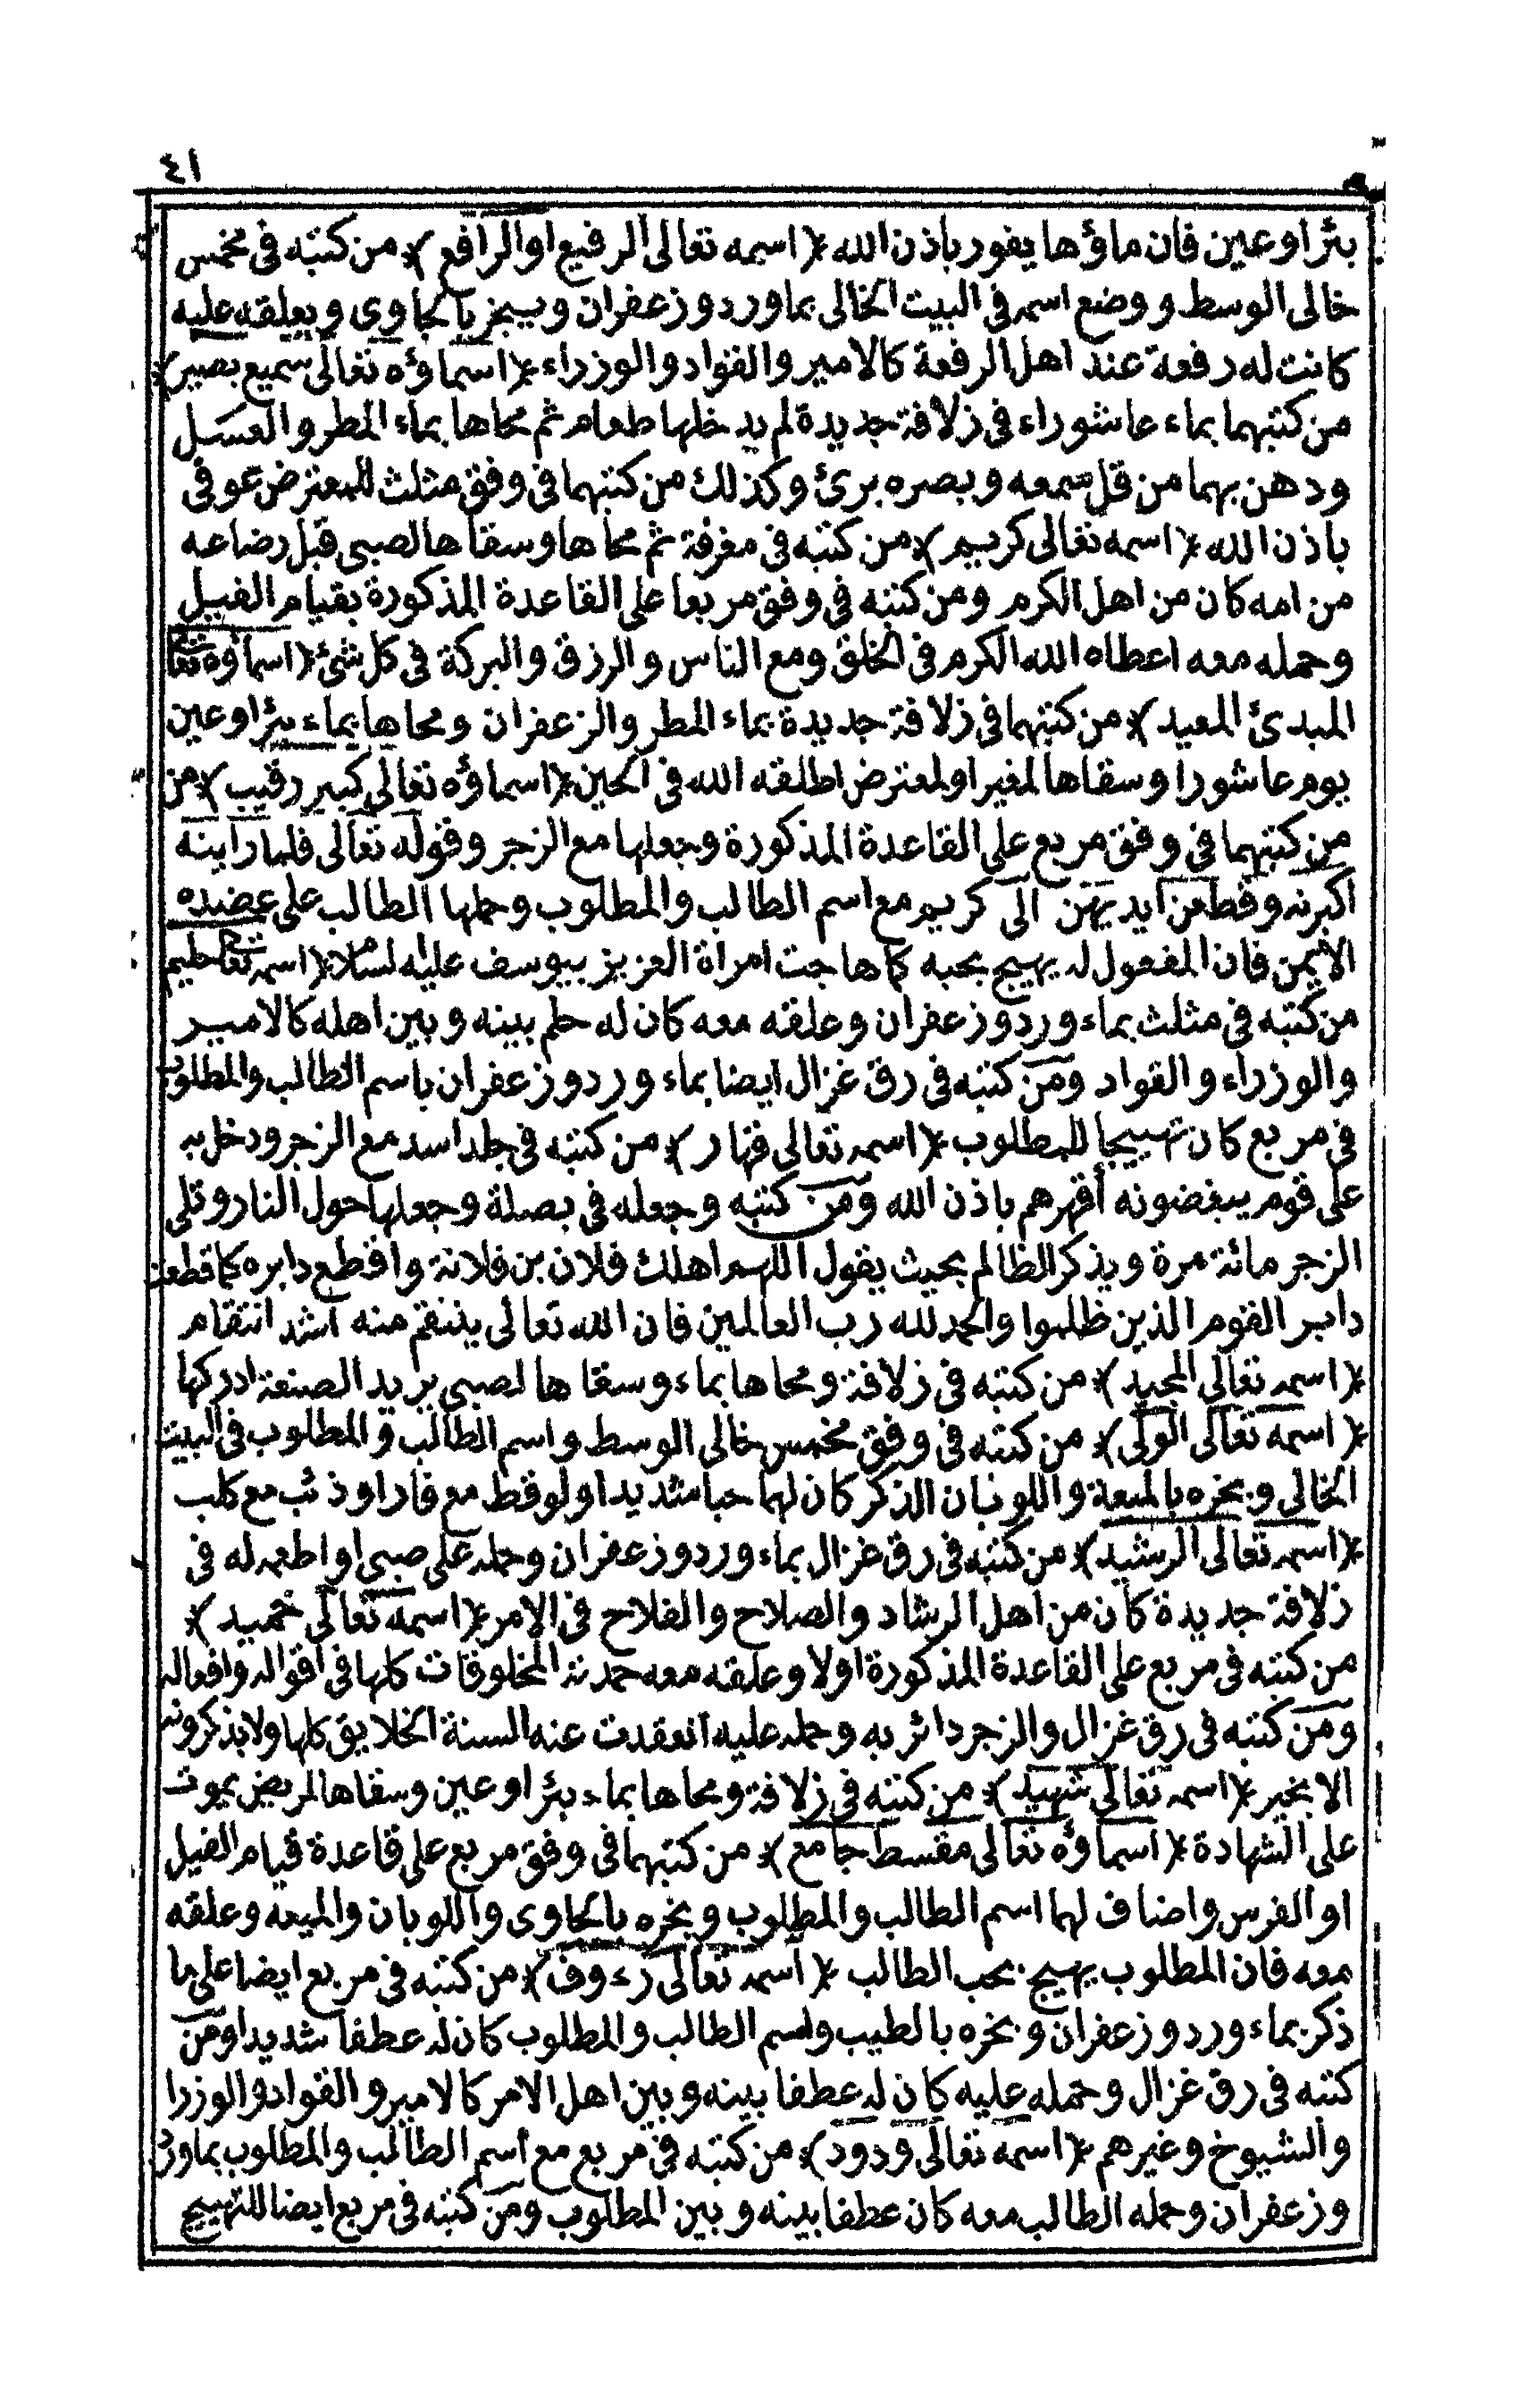 ٤١
بئر او عين فان ماؤها يفور باذن الله ﴿اسمه تعالى الرفيع او الرافع﴾ من كتبه فى مخمس
خالى الوسط ووضع اسمه فى البيت الخالى بماورد وزعفران ويبخر بالجاوى ويعلقه عليه
كانت له رفعة عند اهل الرفعة كالامير والقواد والوزراء ﴿اسماؤه تعالى سميع بصير﴾
من كتبهما بماء عاشوراء فى زلافة جديدة لم يدخلها طعام ثم محاها بماء المطر والعسل
ودهن بهما من قل سمعه وبصره برئ وكذلك من كتبهما فى وفق مثلث للمعترض عوفى
باذن الله ﴿اسمه تعالى كريم﴾ من كتبه فى مغرفة ثم محاها وسقاها لصبى قبل رضاعه
من امه كان من اهل الكرم ومن كتبه فى وفق مربعا على القاعدة المذكورة بقيام الفيل
وحمله معه اعطاه الله الكرم فى الخلق ومع الناس والرزق والبركة فى كل شئ ﴿اسماؤه تعالى
المبدئ المعيد﴾ من كتبهما فى زلافة جديدة بماء المطر والزعفران ومحاها بماء بئر او عين
يوم عاشورا وسقاها لمغير او لمعترض اطلقه الله فى الحين ﴿اسماؤه تعالى كبير رقيب﴾ من
من كتبهما فى وفق مربع على القاعدة المذكورة وجعلها مع الزجر وقوله تعالى فلما راينه
اكبرنه وقطعن ايديهن الى كريم مع اسم الطالب والمطلوب وحملها الطالب على عضده
الايمن فان المفعول له يهيج بحبه كما هاجت امراة العزيز بيوسف عليه السلام ﴿اسمه تعالى حليم
من كتبه فى مثلث بماء ورد وزعفران وعلقه معه كان له حلم بينه وبين اهله كالامير
والوزراء والقواد ومن كتبه فى رق غزال ايضا بماء ورد وزعفران باسم الطالب والمطلوب
فى مربع كان تهييجا للمطلوب ﴿اسمه تعالى قهار﴾ من كتبه فى جلد اسد مع الزجر ودخل به
على قوم يبغضونه أقهرهم باذن الله ومن كتبه وجعله فى بصلة وجعلها حول النار وتلى
الزجر مائة مرة ويذكر الظالم بحيث يقول اللهم اهلك فلان بن فلانة واقطع دابره كما قطعت
دابر القوم الذين ظلموا والحمد لله رب العالمين فان الله تعالى ينتقم منه أشد انتقام
﴿اسمه تعالى المجيد﴾ من كتبه فى زلافة ومحاها بماء وسقاها لصبى يريد الصنعة ادركها
﴿اسمه تعالى الولى﴾ من كتبه فى وفق مخمس خالى الوسط واسم الطالب والمطلوب فى البيت
الخالى وبخره بالميعة واللوبان الذكر كان لهما حبا شديدا ولو قط مع فار او ذئب مع كلب
﴿اسمه تعالى الرشيد﴾ من كتبه فى رق غزال بماء ورد وزعفران وحمله على صبى او اطعمه له فى
زلافة جديدة كان من اهل الرشاد والصلاح والفلاح فى الامر ﴿اسمه تعالى حميد﴾
من كتبه فى مربع على القاعدة المذكورة اولا وعلقه معه حمدته المخلوقات كلها فى اقواله وافعاله
ومن كتبه فى رق غزال والزجر دائر به وحمله عليه انعقدت عنه السنة الخلايق كلها ولا يذكرونه
الا بخير ﴿اسمه تعالى شهيد﴾ من كتبه فى زلافة ومحاها بماء بئر او عين وسقاها لمريض يموت
على الشهادة ﴿اسماؤه تعالى مقسط جامع﴾ من كتبهما فى وفق مربع على قاعدة قيام الفيل
او الفرس واضاف لهما اسم الطالب والمطلوب وبخره بالجاوى واللوبان والميعه وعلقه
معه فان المطلوب يهيج بحب الطالب ﴿اسمه تعالى رءوف﴾ من كتبه فى مربع ايضا على ما
ذكر بماء ورد وزعفران وبخره بالطيب واسم الطالب والمطلوب كان له عطفا شديدا ومن
كتبه فى رق غزال وحمله عليه كان له عطفا بينه وبين اهل الامر كالامير والقواد والوزرا
والشيوخ وغيرهم ﴿اسمه تعالى ودود﴾ من كتبه فى مربع مع أسم الطالب والمطلوب بماورد
وزعفران وحمله الطالب معه كان عطفا بينه وبين المطلوب ومن كتبه فى مربع ايضا للتهييج